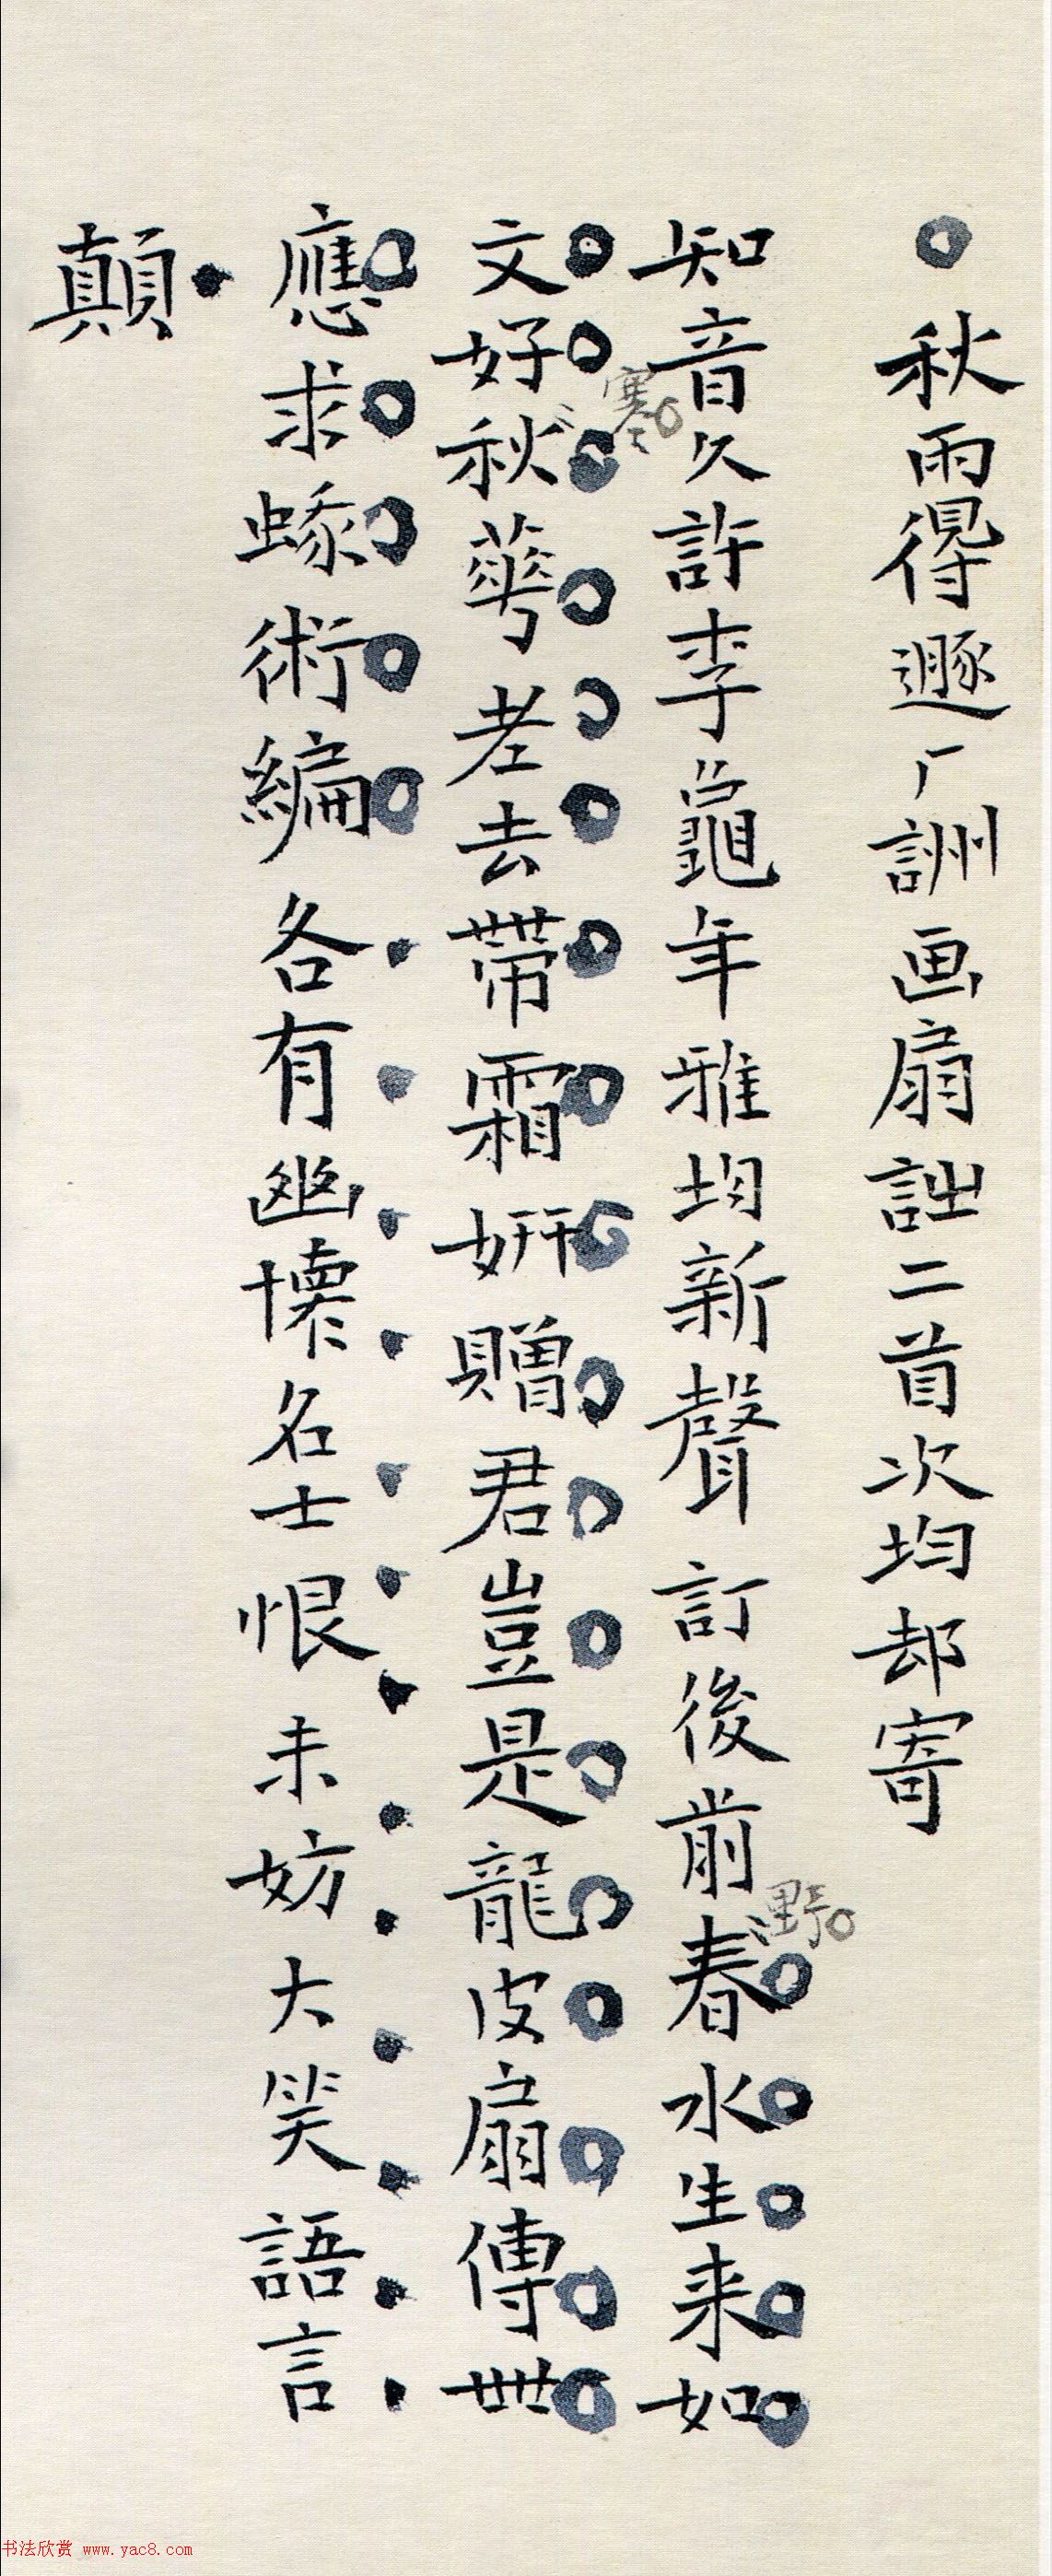 秋雨得遯厂詶画扇詘二首次均却寄
知音久許李龜年雅均新聲訂後前春水生来如
野
文好秋蕚老去帶霜妍贈君豈是龍皮扇傳世
寒
應求蜍術編各有幽懐名士恨未妨大笑語言
顛
书法欣赏 www.yac8.com